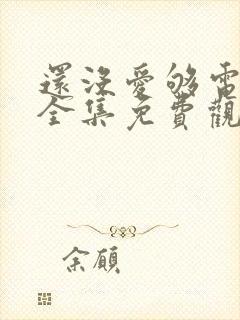 還沒愛够電
全集免費觀
余願